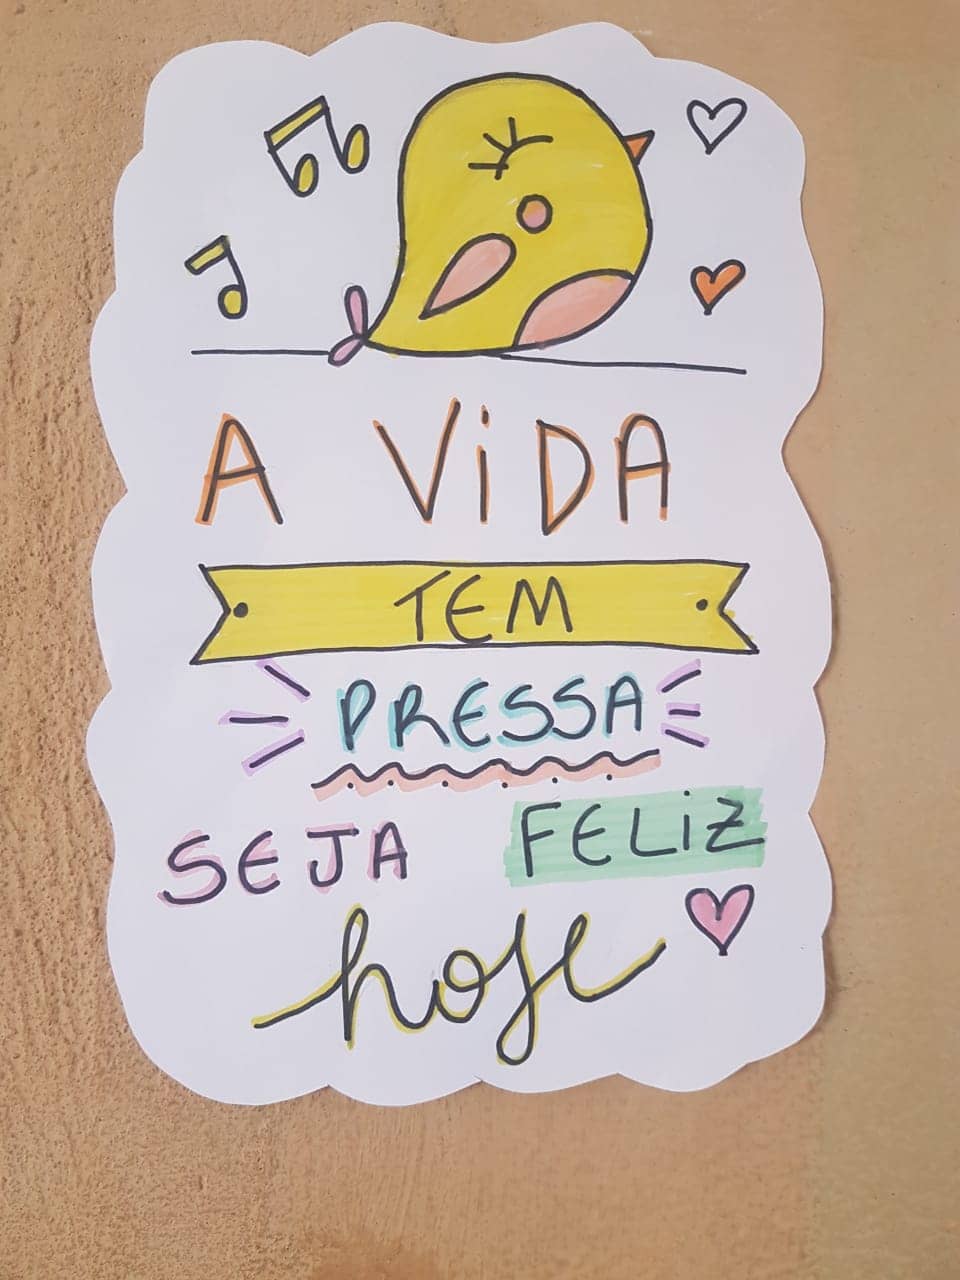 A ViDA
TEM
PRESSA
SEJA FELiZ
hoje